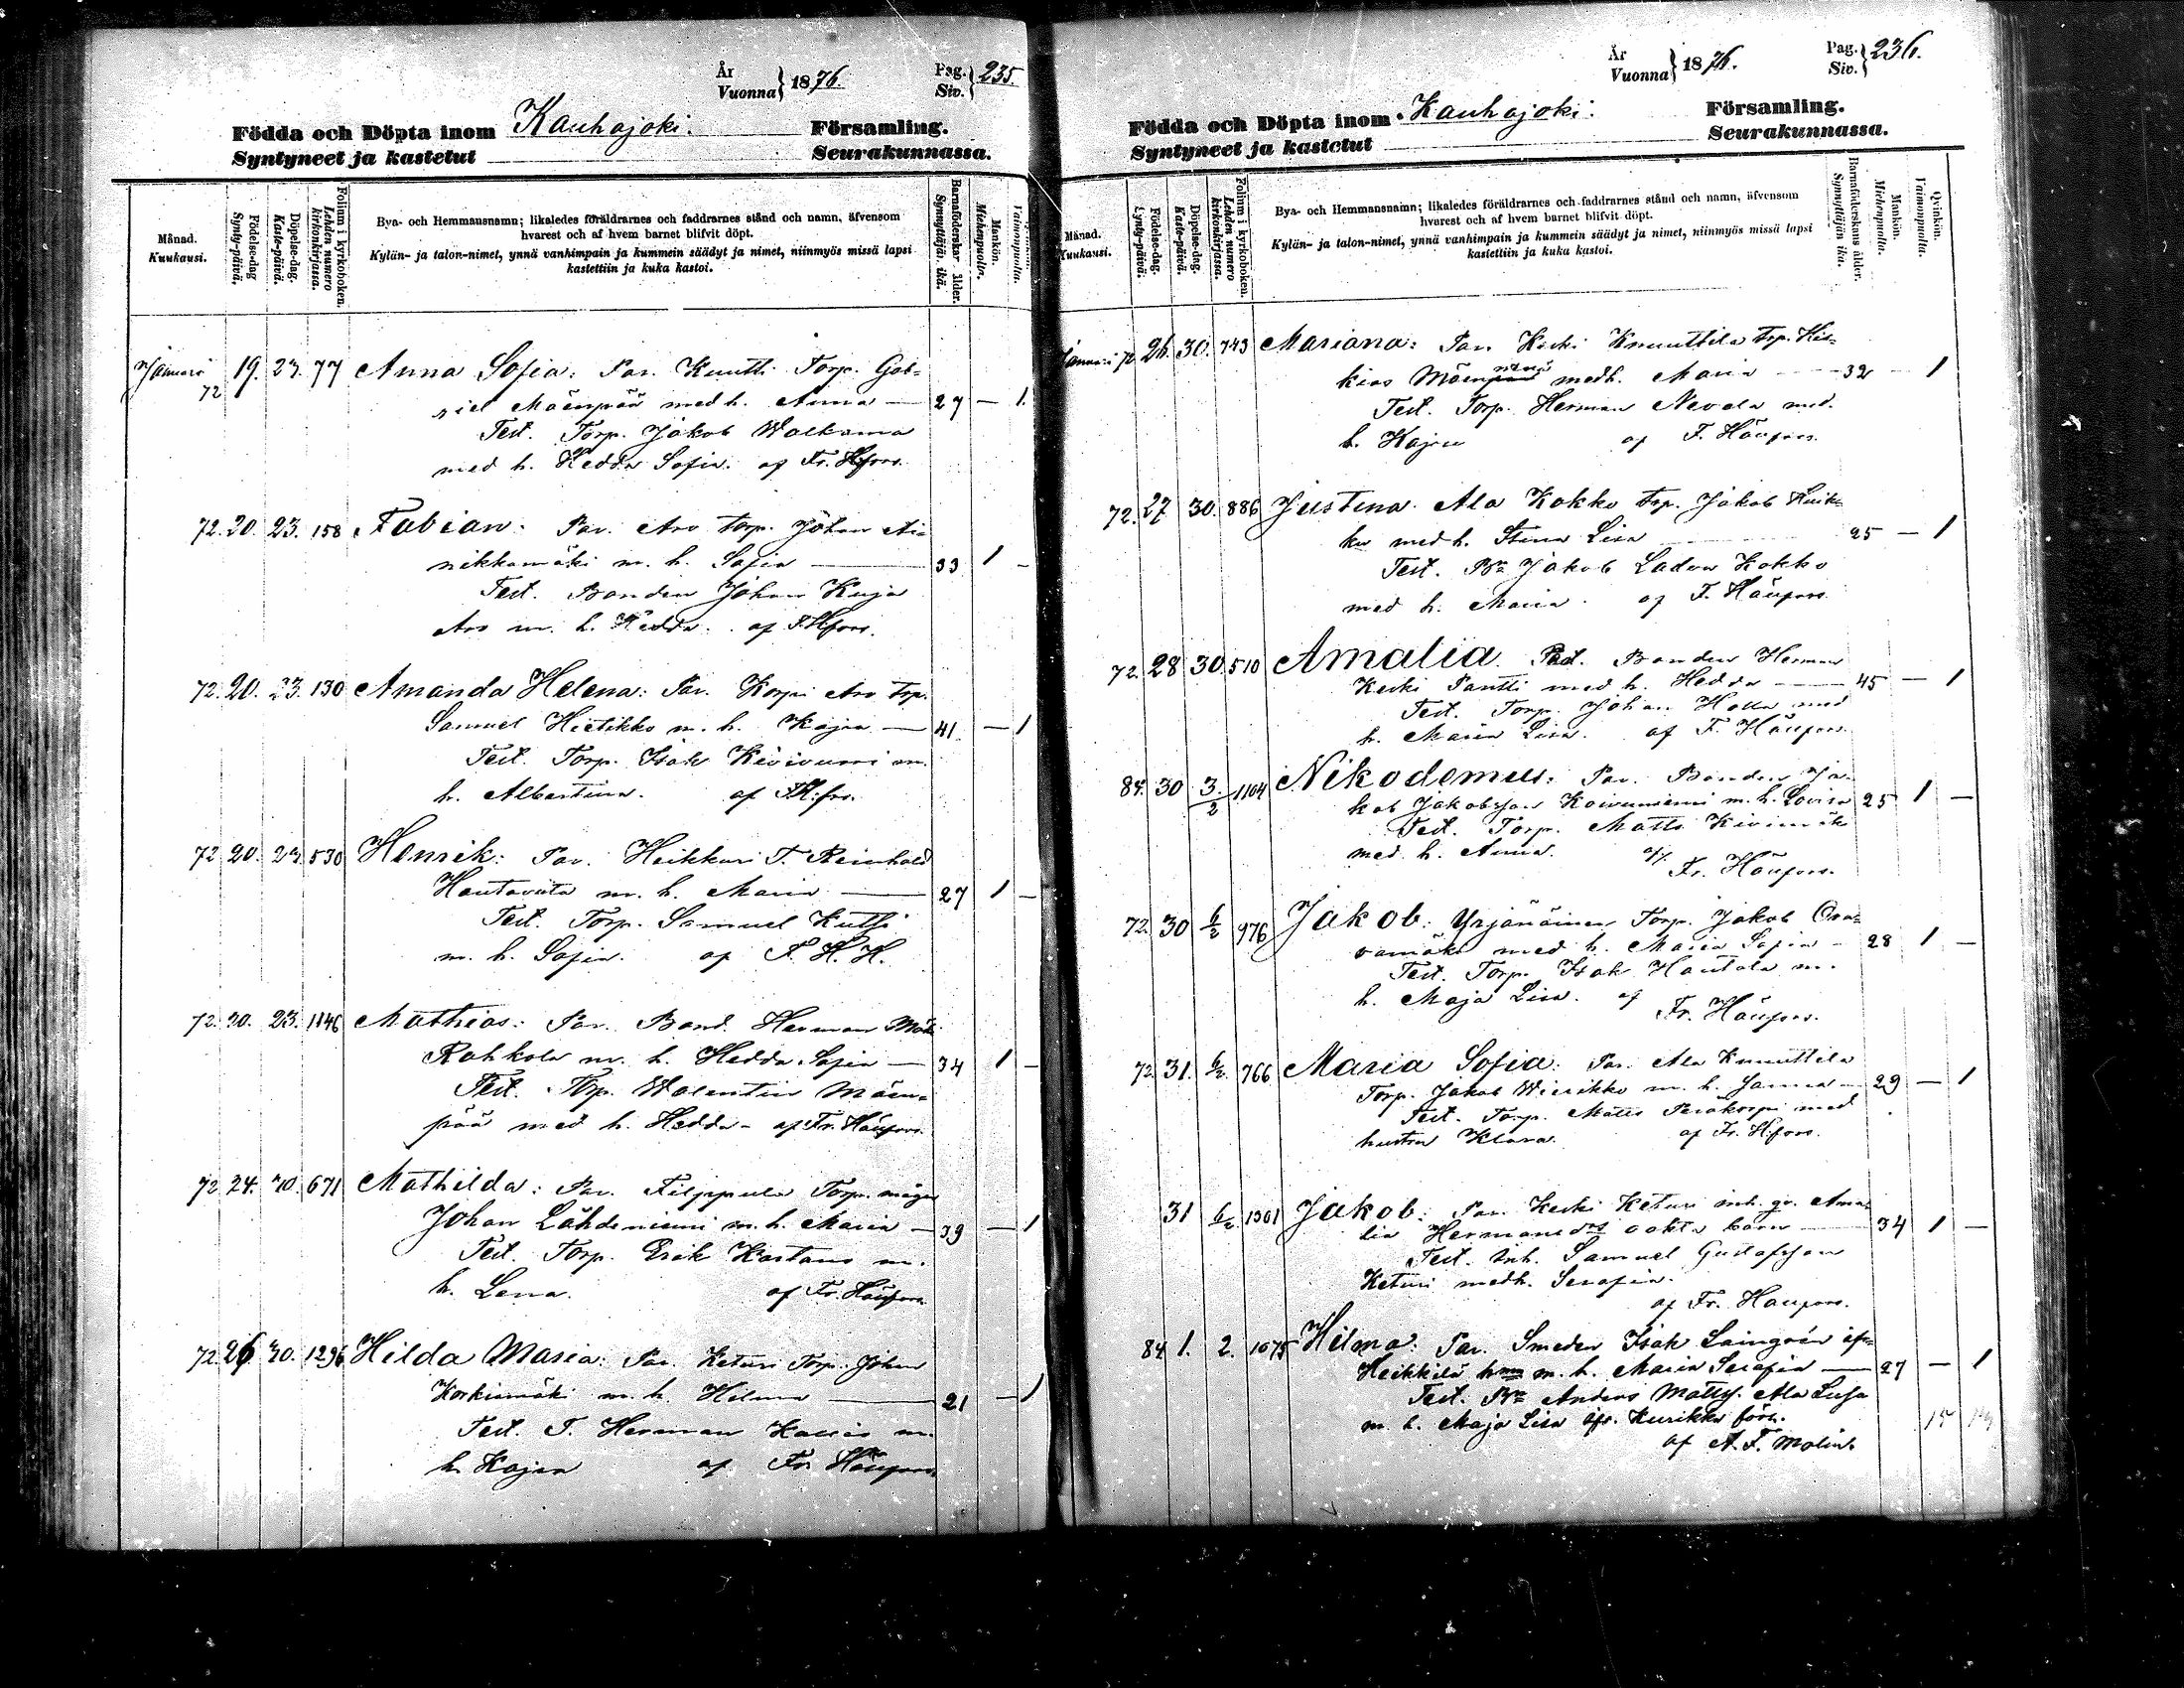 År
Vuonna } 1876. Pag.
Siv. } 235.
Födda och Döpta inom Kauhajoki. Församling.
Syntyneet ja kastetut Seurakunnassa.
Månad.
Kuukausi.
Födelse-dag
Synty-päivä.
Döpelse-dag.
Kaste-päivä.
Folium i kyrkoboken.
Lehden numero kirkonkirjassa.
Bya- och Hemmansnamn; likaledes föräldrarnes och faddrarnes stånd och namn, äfvensom
hvarest och af hvem barnet blifvit döpt.
Kylän- ja talon-nimet, ynnä vanhimpain ja kummein säädyt ja nimet, niinmyös missä lapsi
kastettiin ja kuka kastoi.
Barnaföderskar ålder.
Synnyttäjän ikä.
Mankön.
Miehenpuolia.
Vaimonpuolta.
Januari 72 19. 23. 77 Anna Sofia: Par. Knutti Torp. Gab=
riel Mäenpää med h. Anna — 27 — 1.
Test. Torp. Jakob Walkama
med h. Hedda Sofia. af Fr. Hfors.
72. 20. 23. 158 Fabian. Par. Aro torp. Johan
nikkamäki m. h. Sofia — 33 1 —
Test. Bonden Johan Kuja
Aro m. h. Hedda. af F. Hfors.
72. 20. 23. 130 Amanda Helena: Par. Korpi Aro Trp.
Samuel Hietikko m. h. Kajsa — 41 — 1
Test. Torp. Isak Kivivuori m.
h. Albertina. af F.H.frs.
72 20. 23. 530 Henrik: Par. Heikkuri T. Reinhold
Hautaviita m. h. Maria — 27 1 —
Test. Torp. Samuel Kutti
m. h. Sofia. af F. H. H.
72. 20. 23. 1146 Mathias: Par. Bond. Herman
Rahkola m. h. Hedda Sofia — 34 1 —
Test. Torp. Walentin Mäen=
pää med h. Hedda - af Fr. Häufors.
72 24. 30. 671 Mathilda: Par. Filppula Torp. mågen
Johan Lähdeniemi m. h. Maria — 39 — 1
Test. Torp. Erik Kartano m.
h. Lena. af Fr. Häufors
72. 26 30. 1296 Hilda Maria: Par. Keturi Torp. Johan
Korkiamäki m. h. Hilma — 21 — 1
Test. T. Herman m.
h. Kajsa af Fr. Häufors
År
Vuonna } 1876. Pag.
Siv. } 236.
Födda och Döpta inom Kauhajoki. Församling.
Syntyneet ja kastetut Seurakunnassa.
Månad.
Kuukausi.
Födelse-dag.
Synty-päivä.
Döpelse-dag.
Kaste-päivä.
Folium i kyrkoboken.
Lehden numero kirkonkirjassa.
Bya- och Hemmansnamn; likaledes föräldrarnes och faddrarnes stånd och namn, äfvensom
hvarest och af hvem barnet blifvit döpt.
Kylän- ja talon-nimet, ynnä vanhimpain ja kummein säädyt ja nimet, niinmyös missä lapsi
kastettiin ja kuka kastoi.
Barnaföderskans ålder.
Synnyttäjän ikä.
Mankön.
Miehenpuolta.
Qvinkön.
Vaimonpuolta.
Januari 72 26. 30. 743 Mariana: Par. Keski Knuuttila trp. His=
kias medh. Maria — 32 — 1
Test. Torp. Herman Nevala med.
h. Kajsa af F. Häufors.
72. 27 30. 886 Justina. Ala Kokko trp. Jakob
med h. Stina Lisa 25 — 1
Test. Bn Jakob Kokko
med h. Maria. af F. Häufors.
72 28 30. 510 Amalia. Bonden Herman
Keski Pantti med h. Hedda — 45 — 1
Test. Torp. Johan med
h. Maria Lisa. af F. Häufors.
84. 30 3/2 1104 Nikodemus: Par. Bonden Ja-
kob Jakobsson Koivuniemi m. h. Lovisa 25 1 —
Test. Torp. Matts Kivimäki
med h. Anna. af
Fr. Häufors.
72. 30 6/2 976 Jakob: Yrjänäinen Torp. Jakob Ora=
vamäki med h. Maria Sofia - 28 1 —
Test. Torp. Isak Hautala m.
h. Maja Lisa. af
Fr. Häufors.
72. 31. 6/2 766 Maria Sofia: Par. Ala Knuuttila
Torp. Jakob Wierikko m. h. Sanna — 29 — 1
Test. Torp. Matts Peräkorpi med
hustru Klara. af Fr. Hfors.
31 6/2 1301 Jakob: Par. Keski Keturi inh. qv. Ama=
lia Hermansdr oäkta barn — 34 1 —
Test. Inh. Samuel Gustafsson
Keturi medh. Serafia.
af Fr. Häufors.
84 1. 2. 1075 Hilma: Par. Smeden Isak
Heikkilä hmn m. h. Maria Serafia — 27 — 1
Test. Bn Anders Matts. Ala
m. h. Maja Lisa Kurikka förs.
af A. F. Molin.
15